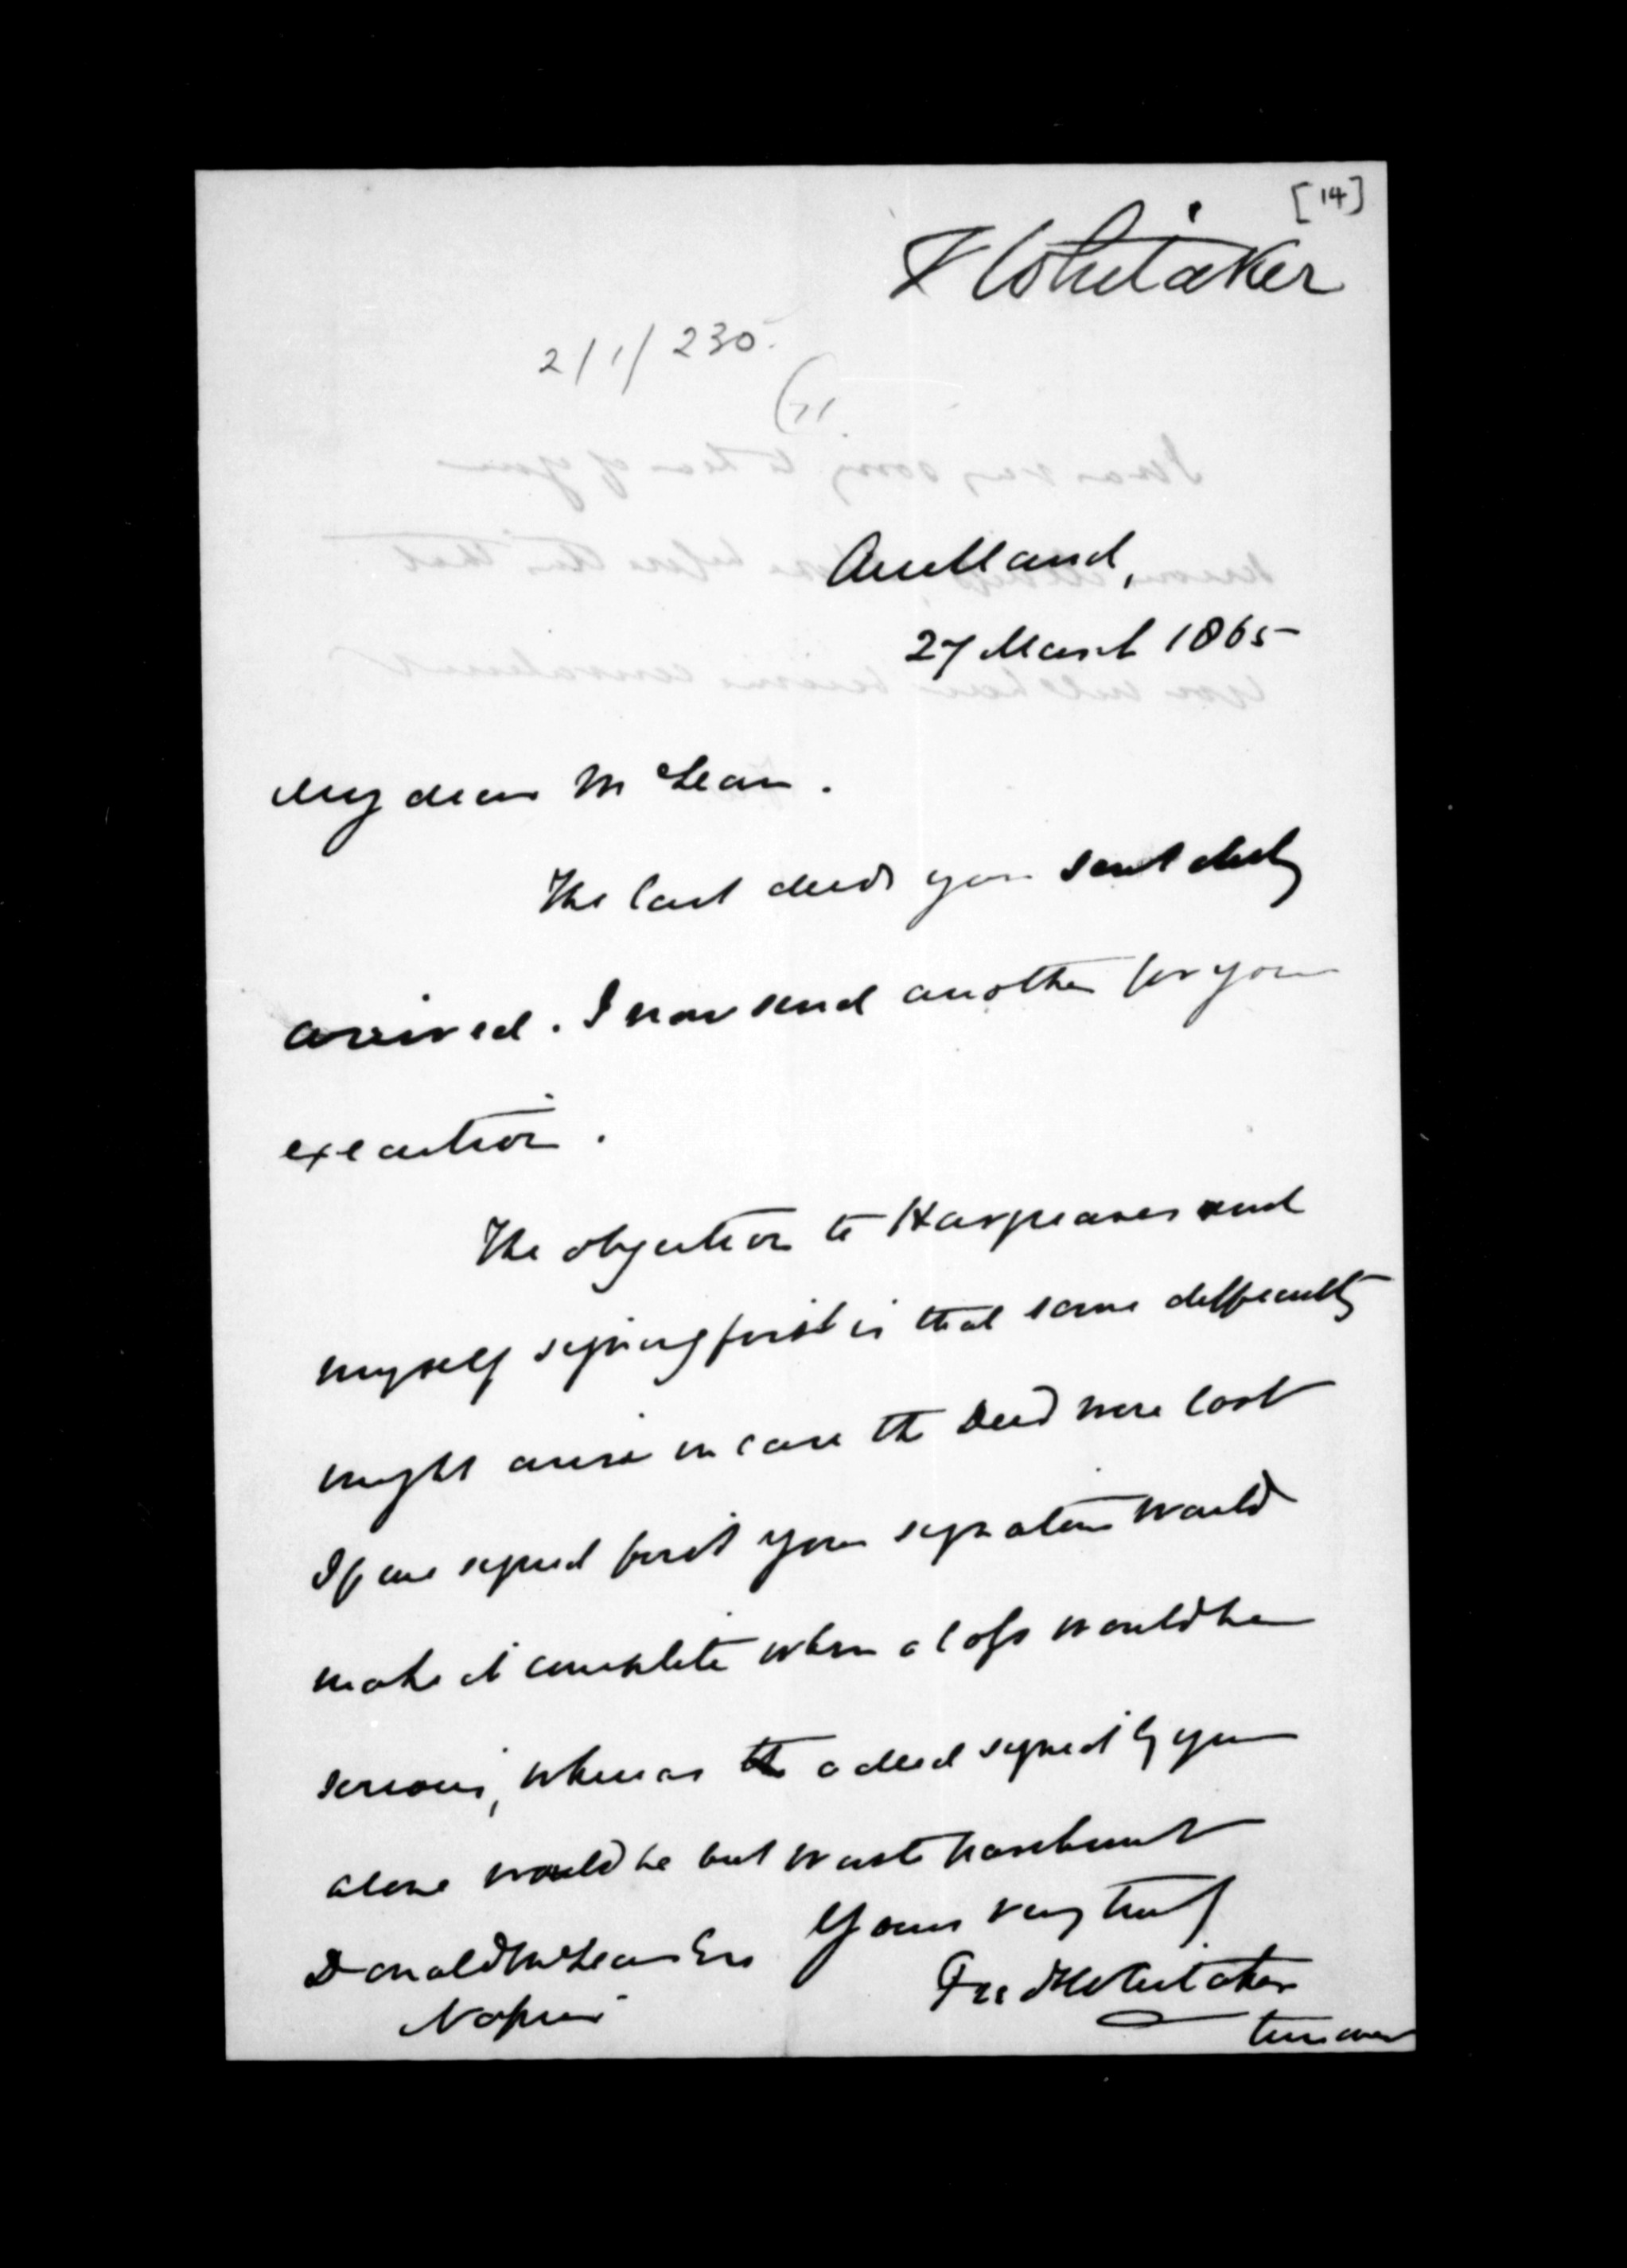 [14]
F Whitaker
2/1/230.
Auckland,
27 March 1865
My dear McLean.
The last deeds you sent duly
arrived. I now send another for your
execution.
The objection to Hargreaves and
myself signing first is that some difficulty
might arise in case the Deed were lost
If we signed first your signature would
make it complete when a loss would be
serious, whereas the a deed signed by you
alone would be but waste parchment
Yours very truly
Donald McLean Esq
Fred Whitaker
Napier
turn over